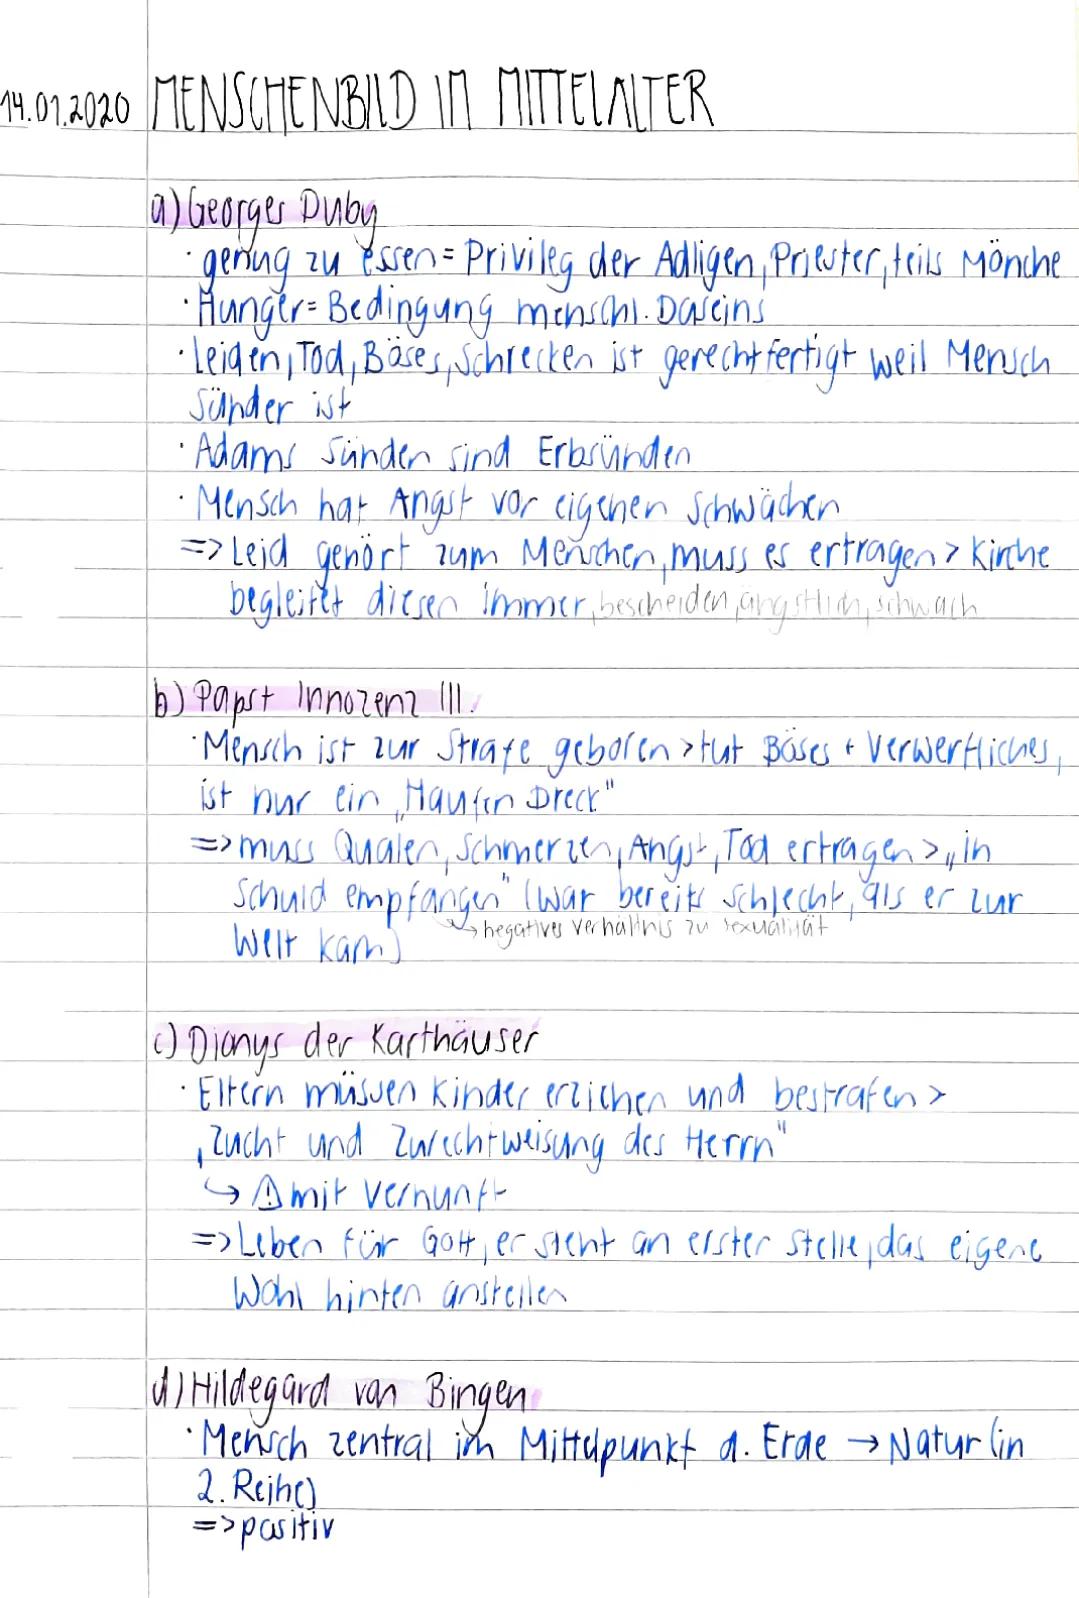 14.01.2020 MENSCHENBILD IM MITTELALTER
a) Georges Duby
· genug zu essen = Privileg der Adligen, Priester, teils Mönche
· Hunger = Bedingung menschl. Daseins
· Leiden, Tod, Böses, Schrecken ist gerechtfertigt weil Mensch
Sünder ist
· Adams Sünden sind Erbsünden
· Mensch hat Angst vor eigenen Schwächen
=> Leid gehört zum Menschen, muss es ertragen > Kirche
begleitet diesen immer, bescheiden, ängstlich, schwach
b) Papst Innozenz III.
· Mensch ist zur Strafe geboren > tut Böses + Verwerfliches,
ist nur ein „Haufen Dreck"
=> muss Qualen, Schmerzen, Angst, Tod ertragen > „in
Schuld empfangen" (war bereits schlecht, als er zur
→ negatives Verhältnis zu Sexualität
Welt kam)
c) Dionys der Karthäuser
· Eltern müssen Kinder erziehen und bestrafen >
„Zucht und Zurechtweisung des Herrn"
↳ ⚠ mit Vernunft
=> Leben für Gott, er steht an erster Stelle, das eigene
Wohl hinten anstellen
d) Hildegard von Bingen
· Mensch zentral im Mittelpunkt d. Erde → Natur (in
2. Reihe)
=> positiv